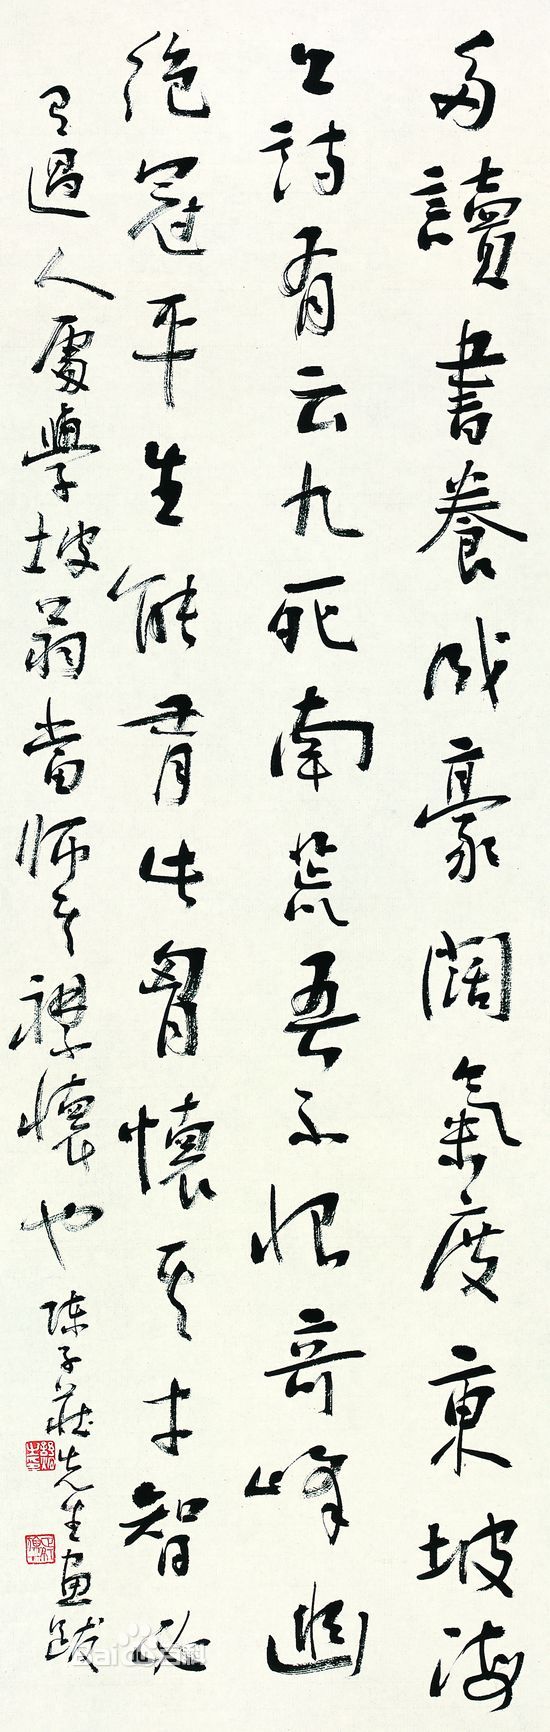 多讀書養成豪闊氣度東坡海
上詩有云九死南荒吾不恨奇峰遊
絕冠平生能有此胸懷其才智必
有過人處學坡翁當師其襟懷也
陳子莊先生畫跋
Bai 百科